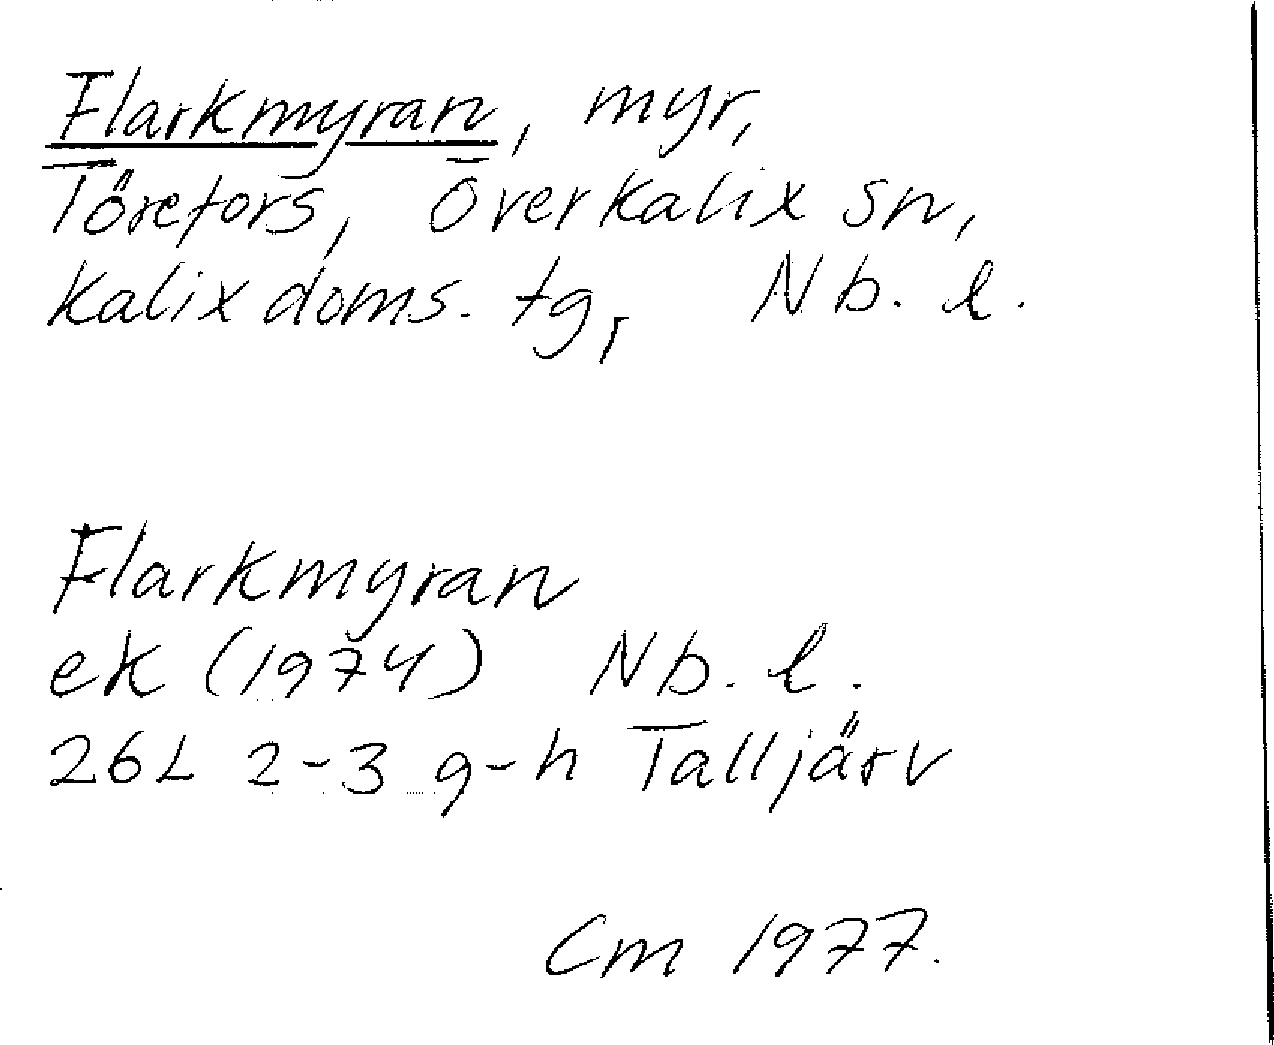 Flarkmyran, myr,
Törefors, Överkalix sn,
Kalix doms. tg, Nb. l.
Flarkmyran
ek (1974) Nb. l.
26L 2-3 g-h Talljärv
Cm 1977.